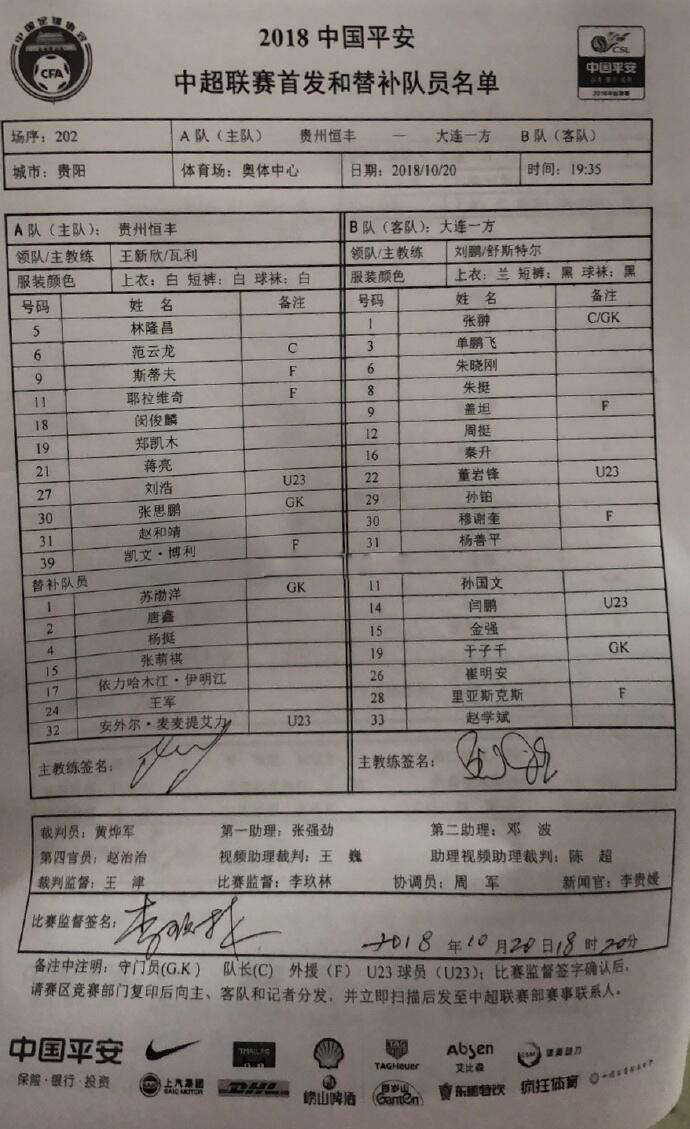 中国足球协会
CFA
2018 中国平安
中超联赛首发和替补队员名单
CSL
中国平安
场序：202 A 队（主队） 贵州恒丰 — 大连一方 B 队（客队）
城市：贵阳 体育场：奥体中心 日期：2018/10/20 时间：19:35
A 队（主队）： 贵州恒丰
领队/主教练 王新欣/瓦利
服装颜色 上衣：白 短裤：白 球袜：白
号码 姓 名 备注
5 林隆昌
6 范云龙 C
9 斯蒂夫 F
11 耶拉维奇 F
18 闵俊麟
19 郑凯木
21 蒋亮
27 刘浩 U23
30 张思鹏 GK
31 赵和靖
39 凯文·博利 F
替补队员
1 苏渤洋 GK
2 唐鑫
4 杨挺
15 张萌祺
17 依力哈木江·伊明江
24 王军
32 安外尔·麦麦提艾力 U23
主教练签名：
B 队（客队）：大连一方
领队/主教练 刘鹏/舒斯特尔
服装颜色 上衣：兰 短裤：黑 球袜：黑
号码 姓 名 备注
1 张翀 C/GK
3 单鹏飞
6 朱晓刚
8 朱挺
9 盖坦 F
12 周挺
16 秦升
22 董岩锋 U23
29 孙铂
30 穆谢奎 F
31 杨善平
11 孙国文
14 闫鹏 U23
15 金强
19 于子千 GK
26 崔明安
28 里亚斯克斯 F
33 赵学斌
主教练签名：
裁判员：黄烨军 第一助理：张强劲 第二助理：邓 波
第四官员：赵治治 视频助理裁判：王 巍 助理视频助理裁判：陈 超
裁判监督：王 津 比赛监督：李玖林 协调员：周 军 新闻官：李贵媛
比赛监督签名： 2018 年 10 月 20 日 18 时 20 分
备注中注明：守门员(G.K) 队长(C) 外援（F） U23 球员（U23）；比赛监督签字确认后，
请赛区竞赛部门复印后向主、客队和记者分发，并立即扫描后发至中超联赛部赛事联系人。
中国平安
保险·银行·投资
TAGHeuer
Absen
艾比森
上汽集团
SAIC MOTOR
DHL
崂山啤酒
百岁山
Ganten
东鹏特饮
疯狂体育